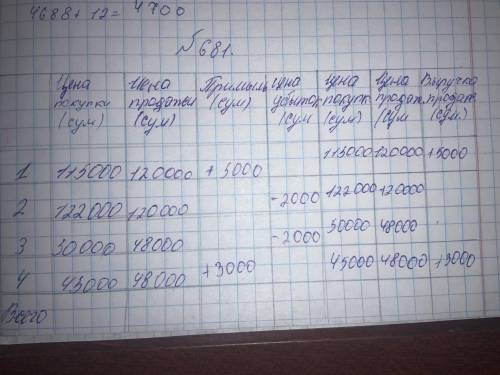 4688 + 12 = 4700
№681.
Цена покупки (сум) Цена продажи (сум) Прибыль (сум) цена убыток (сум цена покупк (сум) Цена продаж (сум Выручка продаж (сум)
1 115000 120000 + 5000 115000 120000 +5000
2 122000 120000 -2000 122000 120000
3 50000 48000 -2000 50000 48000
4 45000 48000 +3000 45000 48000 +3000
Всего